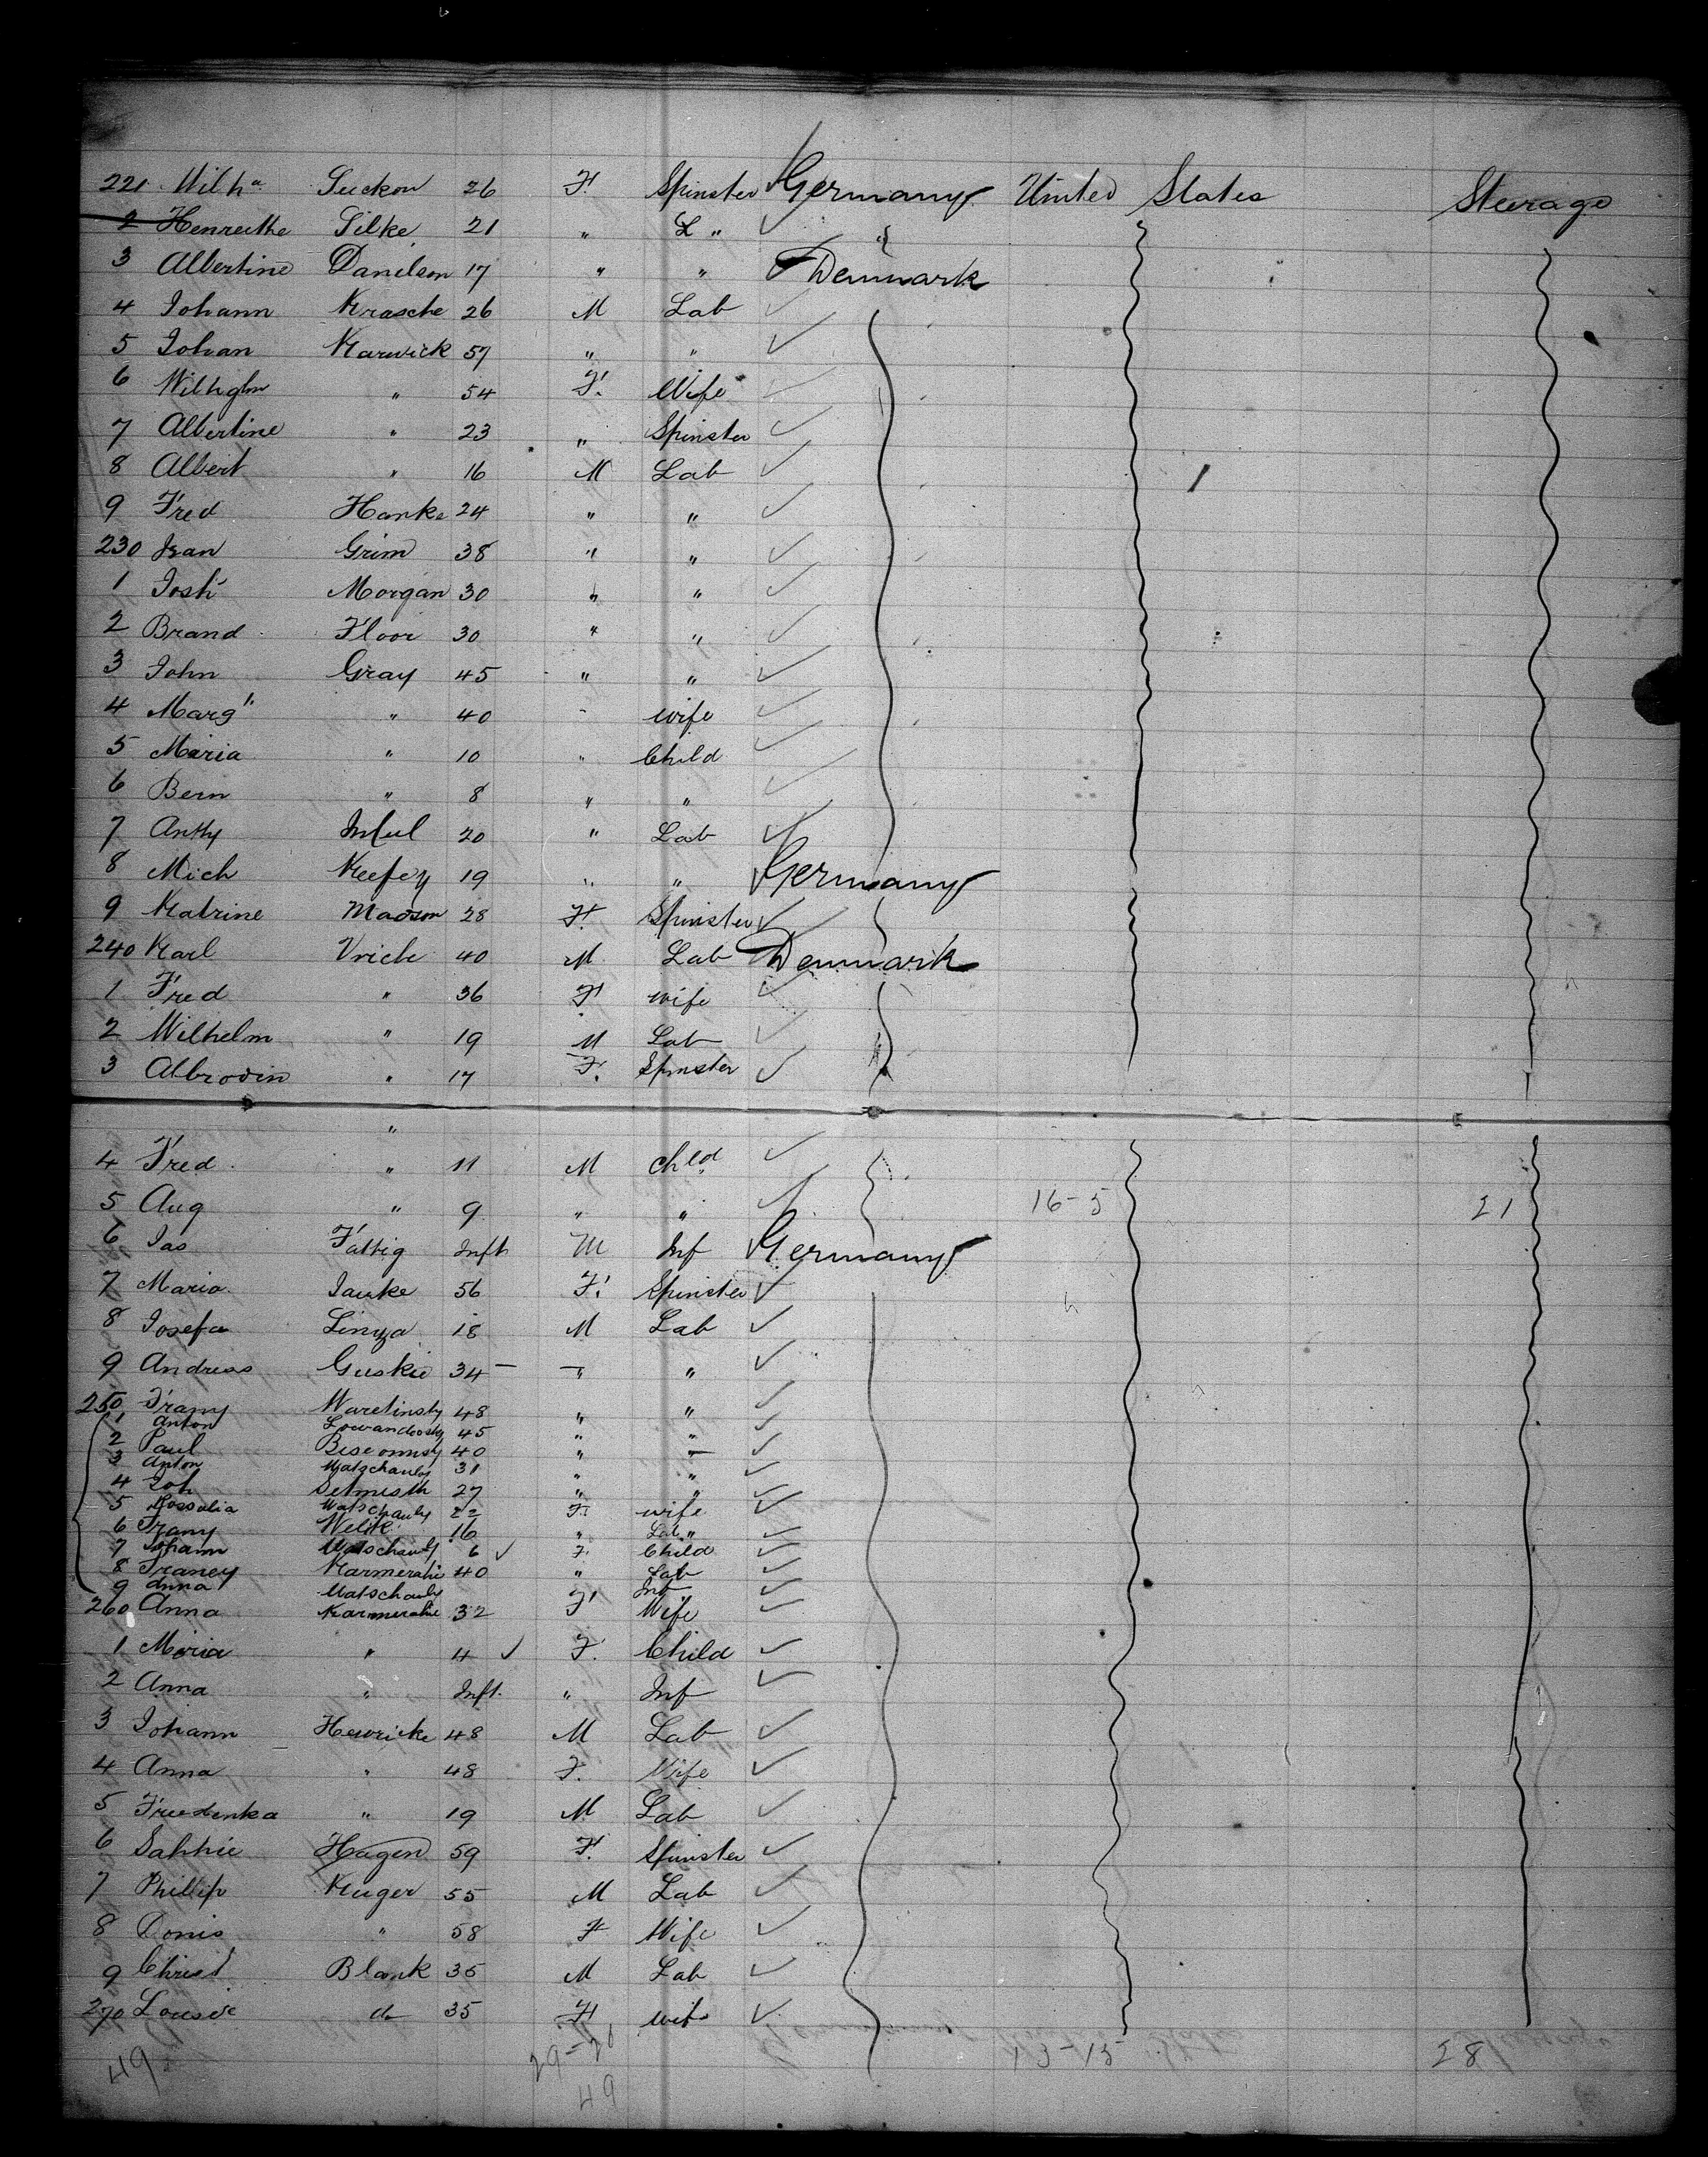 221 Wilhª Suckow 26 F. Spinster Germany United States Steerage
2 Henreithe Silke 21 " L "
3 Albertine Danilson 17 " " Denmark
4 Johann Krasche 26 M Lab
5 Johan Karwick 57 " "
6 Wilhglm " 54 F. Wife
7 Albertine " 23 " Spinster
8 Albert " 16 M Lab
9 Fred Hanke 24 " "
230 Jean Grim 38 " "
1 Josh Morgan 30 " "
2 Brand Floor 30 " "
3 John Gray 45 " "
4 Marg" " 40 " wife
5 Maria " 10 " Child
6 Bern " 8 " "
7 Anthy 20 " Lab
8 Mich Keefey 19 " " Germany
9 Katrine Madson 28 F. Spinster
240 Karl Vrich 40 M Lab Denmark
1 Fred " 36 F. wife
2 Wilhelm " 19 M Lab
3 Albrodin " 17 F. Spinster
"
4 Fred " 11 M Chld
5 Aug " 9 " " 16-5 21
6 Jas Fattig Inft M Inf Germany
7 Maria Janke 56 F. Spinster
8 Josefa Linza 18 M Lab
9 Andreas Guskie 34 — " "
250 Frany Waretinsky 48 " "
1 Anton Lowandosky 45 " "
2 Paul 40 " —
3 Anton Matschauly 31 " "
4 Joh 27 " "
5 Rossalia Matschauly 22 F. wife
6 Frany Welik 16 " Lab "
7 Johann Matschauly 6 F. Child
8 Franey Karmeratie 40 " Lab
9 Anna Matschauly Inf
260 Anna Karmeratie 32 F Wife
1 Maria " 4 F. Child
2 Anna " Inft. " Inf
3 Johann Hewricke 48 M Lab
4 Anna " 48 F. Wife
5 Friedenka " 19 M Lab
6 Sahhie Hagen 59 F. Spinster
7 Phillip Kuger 55 M Lab
8 Donis " 58 F Wife
9 Christ Blank 35 M Lab
270 Lousie do 35 F wife
49 29-20 13-15 28
49